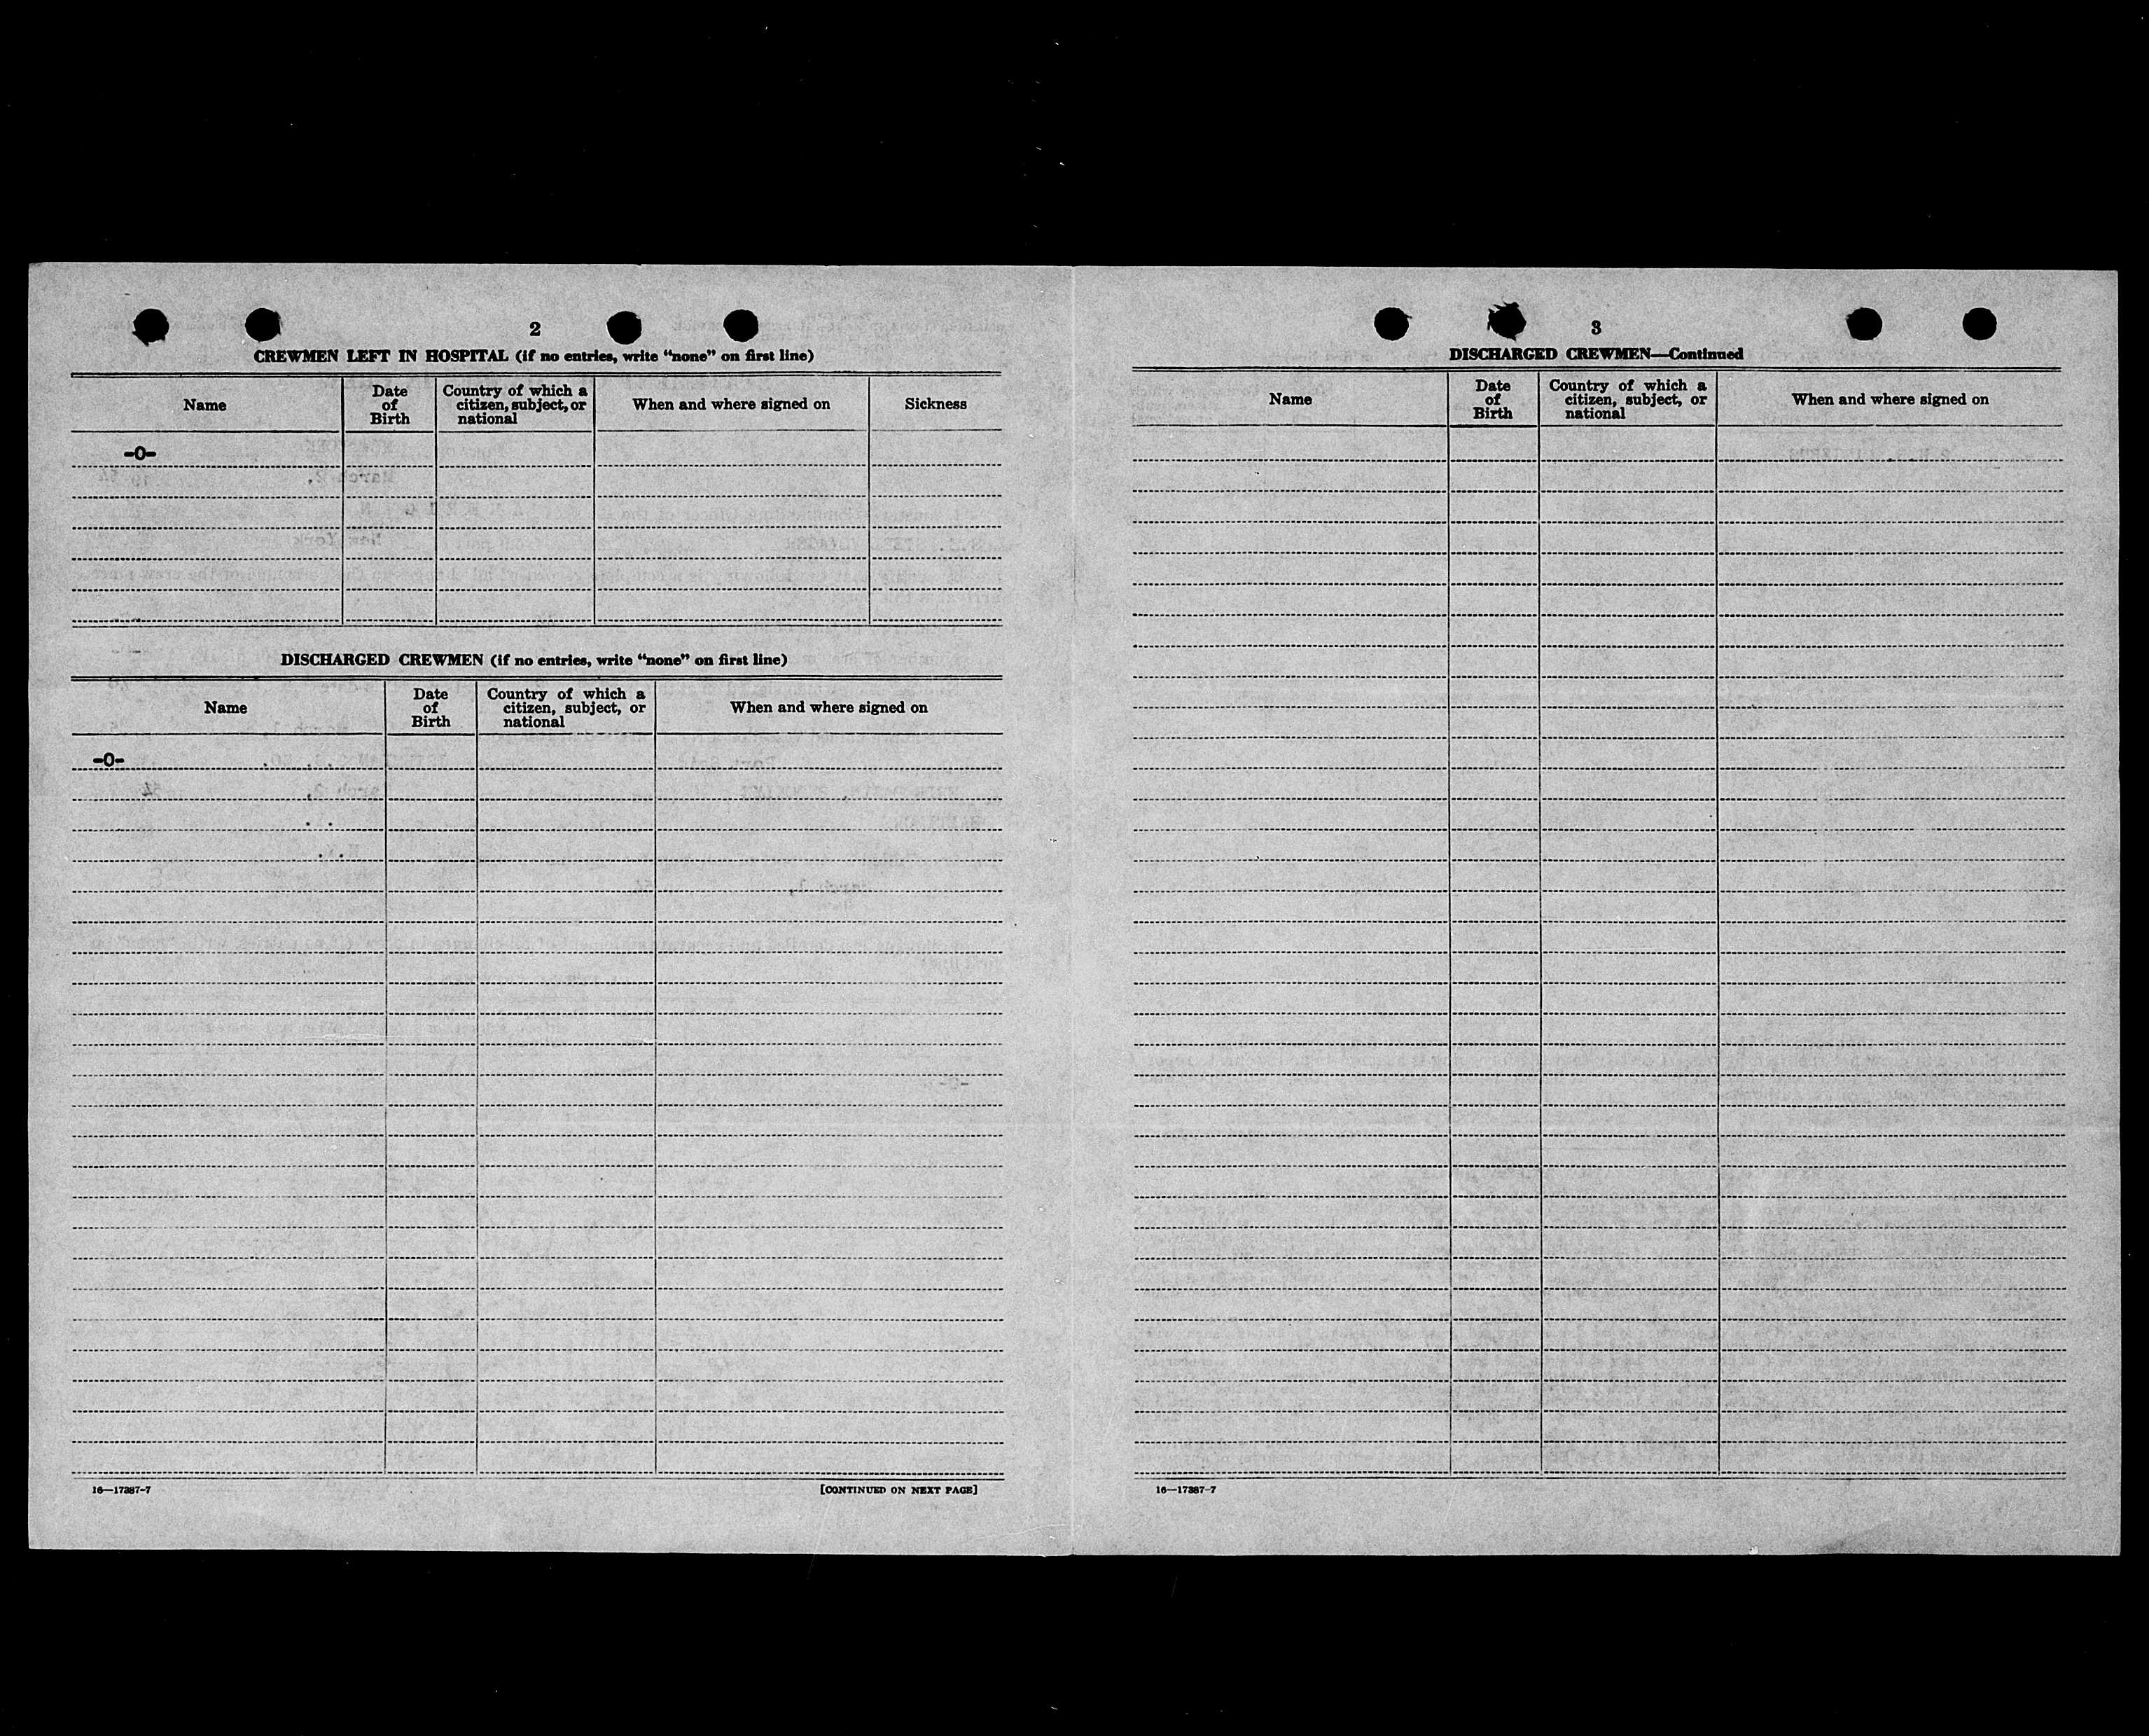 2
CREWMEN LEFT IN HOSPITAL (if no entries, write “none” on first line)
Name
Date of Birth
Country of which a citizen, subject, or national
When and where signed on
Sickness
-0-
DISCHARGED CREWMEN (if no entries, write “none” on first line)
Name
Date of Birth
Country of which a citizen, subject, or national
When and where signed on
-0-
16—17387-7
[CONTINUED ON NEXT PAGE]
3
DISCHARGED CREWMEN—Continued
Name
Date of Birth
Country of which a citizen, subject, or national
When and where signed on
16—17387-7